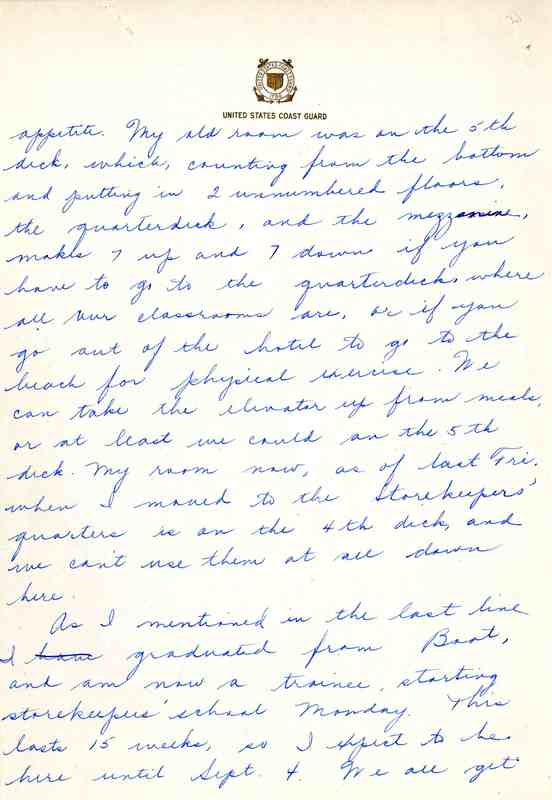 UNITED STATES COAST GUARD
appetite. My old room was on the 5th
deck, which, counting from the bottom
and putting in 2 unnumbered floors,
the quarterdeck, and the mezzanine,
makes 7 up and 7 down if you
have to go to the quarterdeck, where
all our classrooms are, or if you
go out of the hotel to go to the
beach for physical exercise. We
can take the elevator up from meals,
or at least we could on the 5th
deck. My room now, as of last Fri.
when I moved to the Storekeepers'
quarters is on the 4th deck, and
we can't use them at all down
here.
As I mentioned in the last line
I have graduated from Boot,
and am now a trainee, starting
storekeepers' school Monday. This
lasts 15 weeks, so I expect to be
here until Sept. 4. We all get